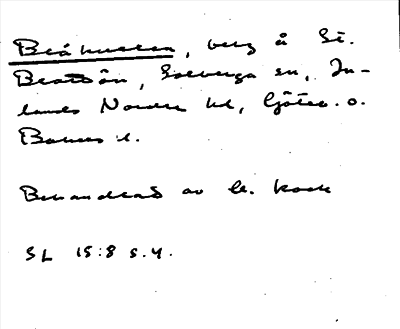 Bråkullen, berg å St.
Brattön, Solberga sn, In-
lands Nordre hd, Göteb. o.
Bohus l.
Behandlad av C. Kock
SL 15:8 s.4.